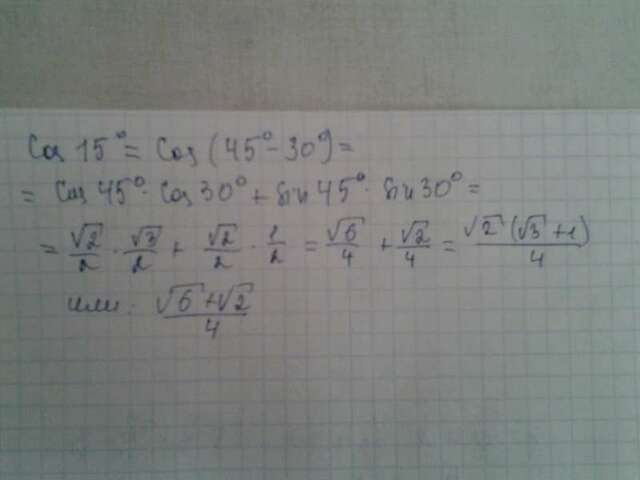 Cos 15° = Cos (45° - 30°) =
= Cos 45° · Cos 30° + Sin 45° · Sin 30° =
= √2/2 · √3/2 + √2/2 · 1/2 = √6/4 + √2/4 = √2 (√3 + 1)/4
или: √6 + √2/4